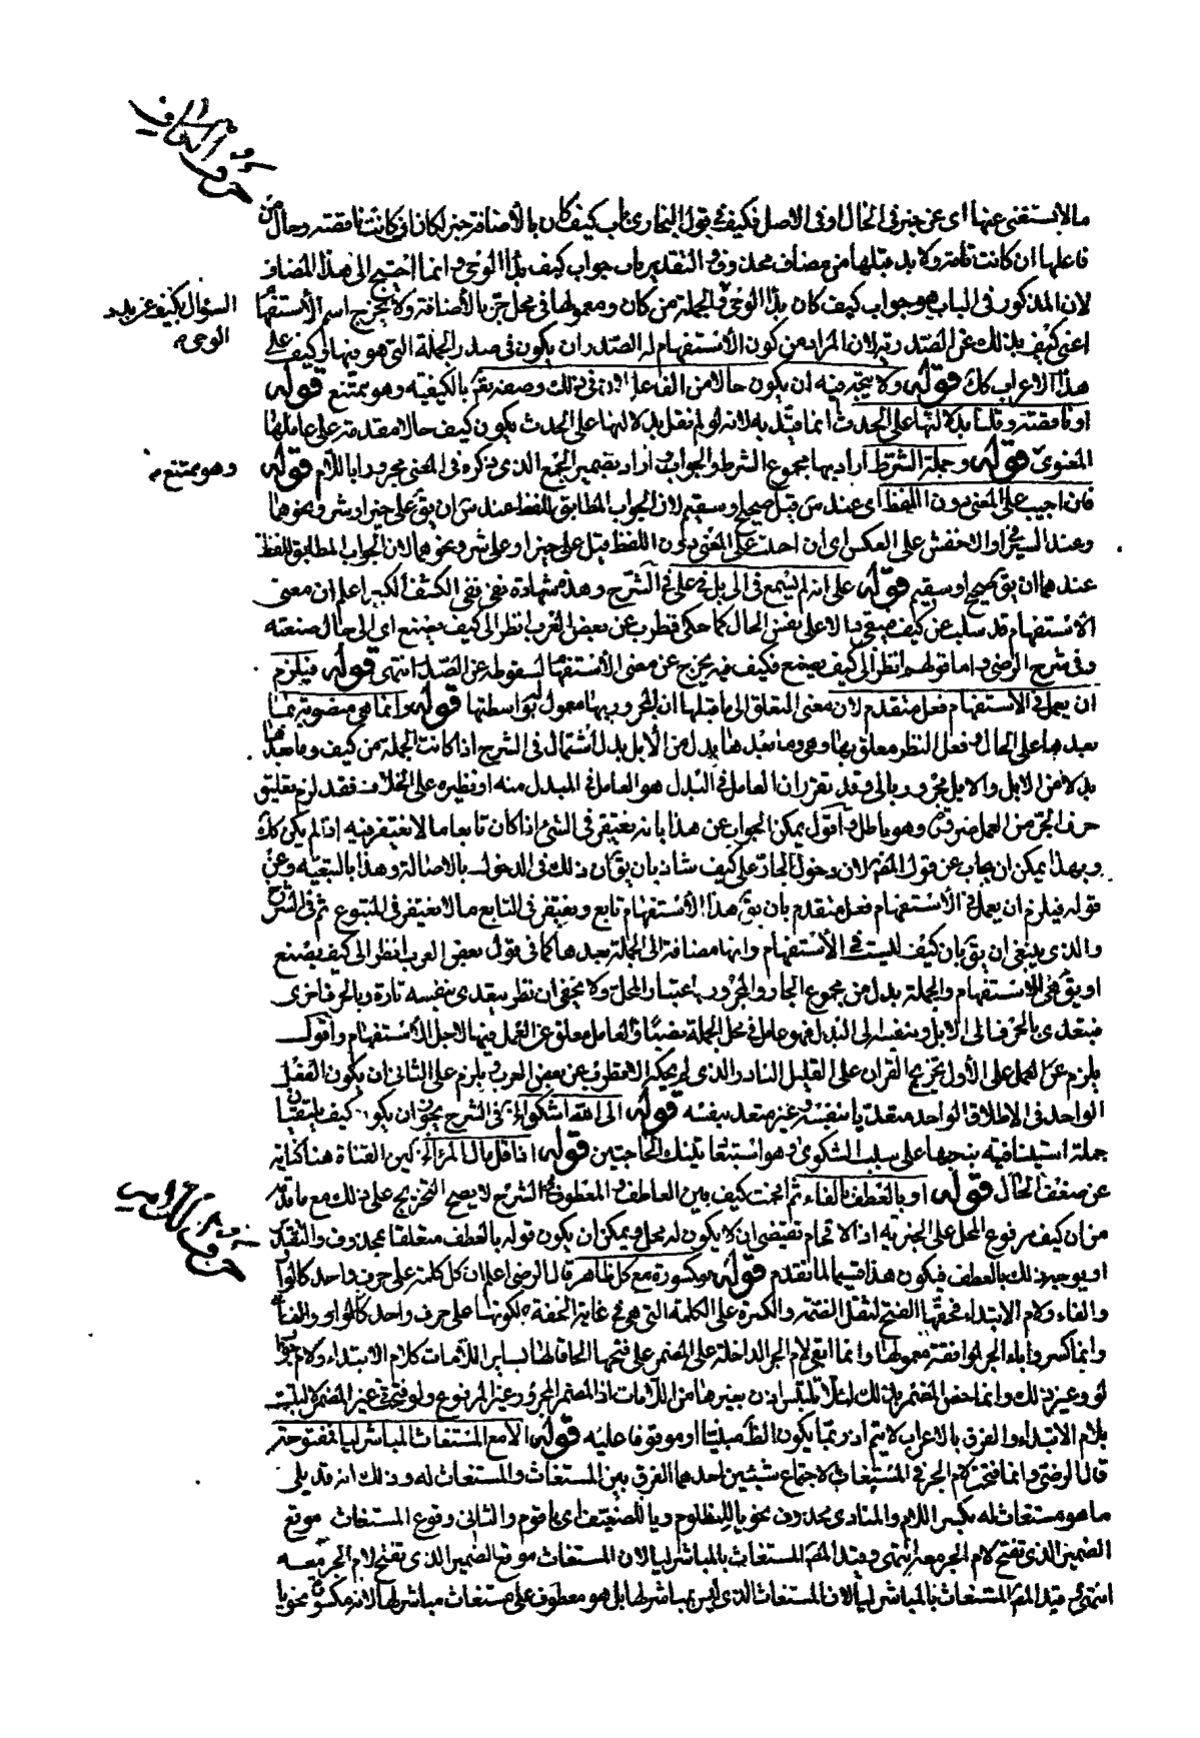 حرف الكاف
ما لا يستغنى عنها اى عن خبر فى الحال او فى الاصل فكيف فى قول البخارى باب كيف كان بالاضافة خبر لكان ان كانت ناقصة وحال من
فاعلها ان كانت تامة ولا بد قبلها من مضاف محذوف والتقدير باب جواب كيف بدأ الوحى وانما احتيج الى هذا المضاف
لان المذكور فى الباب هو جواب كيف كان بدأ الوحى والجملة من كان ومعمولها فى محل جر بالاضافة ولا يخرج اسم الاستفهام
السؤال بكيف عن بدء
الوحى
اعنى كيف بذلك عن الصدرية لان المراد من كون الاستفهام له الصدر ان يكون فى صدر الجملة التى هو فيها وكيف على
هذا الاعراب كك قوله ولا يتجه فيه ان يكون حالا من الفاعل لان فى ذلك وصفه تعالى بالكيفية وهو ممتنع قوله
او ناقصة وقلنا بدلالتها على الحدث انما قيد به لانه لو لم نقل بدلالتها على الحدث يكون كيف حالا مقدمة على عاملها
المعنوى قوله وجملة الشرط اراد بها مجموع الشرط والجواب واراد بضمير الجمع الذى ذكره فى المغنى مجرورا باللام قوله
وهو ممتنع
فان اجيب على المعنى دون اللفظ اى عند س قيل صحيح او سقيم لان الجواب المطابق للفظ عند س ان يق على خير او شر ونحوهما
وعند السيرافى والاخفش على العكس اى ان اجيب على المعنى دون اللفظ قيل على خير او على شر ونحوهما لان الجواب المطابق للفظ
عندهما ان يق صحيح او سقيم قوله على انه لم يسمع فى الى بل فى على فى الشرح وهذه شهادة نفى ففى الكشف الكبير اعلم ان معنى
الاستفهام قد سلب عن كيف فيبقى دالا على نفس الحال كما حكى قطرب عن بعض العرب انظر الى كيف يصنع اى الى حال صنعته
وفى شرح الرضى واما قولهم انظر الى كيف يصنع فكيف فيه مخرج عن معنى الاستفهام لسقوطه عن الصدر انتهى قوله فيلزم
ان يعمل فى الاستفهام فعل متقدم لان معنى التعلق الى ما قبلها ان المجرور بها معمول له بواسطتها قوله وانما هى منصوبة بما
بعدها على الحال وفعل النظر معلق بها وهى وما بعدها بدل من الابل بدل اشتمال فى الشرح اذا كانت الجملة من كيف وما بعدها
بدلا من الابل والابل مجرور بالى وقد تقرر ان العامل فى البدل هو العامل فى المبدل منه او نظيره على الخلاف فقد لزم تعليق
حرف الجر من العمل وهو باطل واقول يمكن الجواب عن هذا بانه يغتفر فى الشئ اذا كان تابعا ما لا يغتفر فيه اذا لم يكن كك
وبهذا يمكن ان يجاب عن قول المص لان دخول الجار على كيف شاذ بان يق ان ذلك فى الدخول بالاصالة وهذا بالتبعية وعن
قوله فيلزم ان يعمل فى الاستفهام فعل متقدم بان يق هذا الاستفهام تابع ويغتفر فى التابع ما لا يغتفر فى المتبوع ثم فى الشرح
والذى ينبغى ان يق بان كيف ليست فى الاستفهام وانها مضافة الى الجملة بعدها كما فى قول بعض العرب انظر الى كيف يصنع
او يق هى للاستفهام والجملة بدل من مجموع الجار والمجرور باعتبار المحل ولا يخفى ان نظر يتعدى بنفسه تارة وبالحرف اخرى
فتعدى بالحرف الى الابل وبنفسه الى البدل فهو عامل فى محل الجملة نصبا والعامل معلق عن العمل فيها لاجل الاستفهام واقول
يلزم عن الحمل على الأول تخريج القران على القليل النادر الذى لم يحكه الا قطرب عن بعض العرب ويلزم على الثانى ان يكون الفعل
الواحد فى الاطلاق الواحد متعديا بنفسه وغير متعد بنفسه قوله الى الله اشكو الخ فى الشرح يجوز ان يكون كيف يلتقيان
جملة استينافية نبه بها على سبب الشكوى وهو استبعاد تينك الحاجتين قوله اذا قل مال المرء لين القناة هنا كناية
عن ضعف الحال قوله او بالعطف بالفاء ثم اقحمت كيف بين العاطف والمعطوف فى الشرح لا يصح التخريج على ذلك مع ما قدمه
حرف اللام
من ان كيف مرفوع المحل على الخبرية اذ الاقحام تقتضى ان لا يكون له محل ويمكن ان يكون قوله بالعطف متعلقا بمحذوف والتقدير
او يوجه ذلك بالعطف فيكون هذا قسيما لما تقدم قوله مكسورة مع كل ظاهر قال الرضى اعلم ان كل كلمة على حرف واحد كالواو
والفاء ولام الابتداء فحقها الفتح لثقل الضمة والكسرة على الكلمة التى هى فى غاية الخفة بكونها على حرف واحد كالواو والفاء
وانما كسروا باء الجر لموافقة معمولها وانما ابقى لام الجر الداخلة على المضمر على فتحها الحاقا لها بسائر اللامات كلام الابتداء ولام جواب
لو وغير ذلك وانما خص المضمر بذلك لئلا تلتبس اذن بغيرها من اللامات اذ المضمر المجرور غير المرفوع ولو فتحت فى غير المضمر لالتبست
بلام الابتداء والفرق بالاعراب لا يتم اذ ربما يكون الظ مبنيا او موقوفا عليه قوله الا مع المستغاث المباشر ليا فمفتوحة
قال الرضى وانما فتحت لام الجر فى المستغاث لاجتماع شيئين احدهما الفرق بين المستغاث والمستغاث له وذلك انه قد يلى يا
ما هو مستغاث له بكسر اللام والمنادى محذوف نحو يا للمظلوم ويا للضعيف اى يا قوم والثانى وقوع المستغاث موقع
الضمير الذى تفتح لام الجر معه انتهى وقيد المص المستغاث بالمباشر ليا لان المستغاث موقع الضمير الذى تفتح لام الجر معه
انتهى وقيد المص المستغاث بالمباشر ليا لان المستغاث الذى ليس بمباشر لها بل هو معطوف على مستغاث مباشر لها لانه مكسور نحو يا